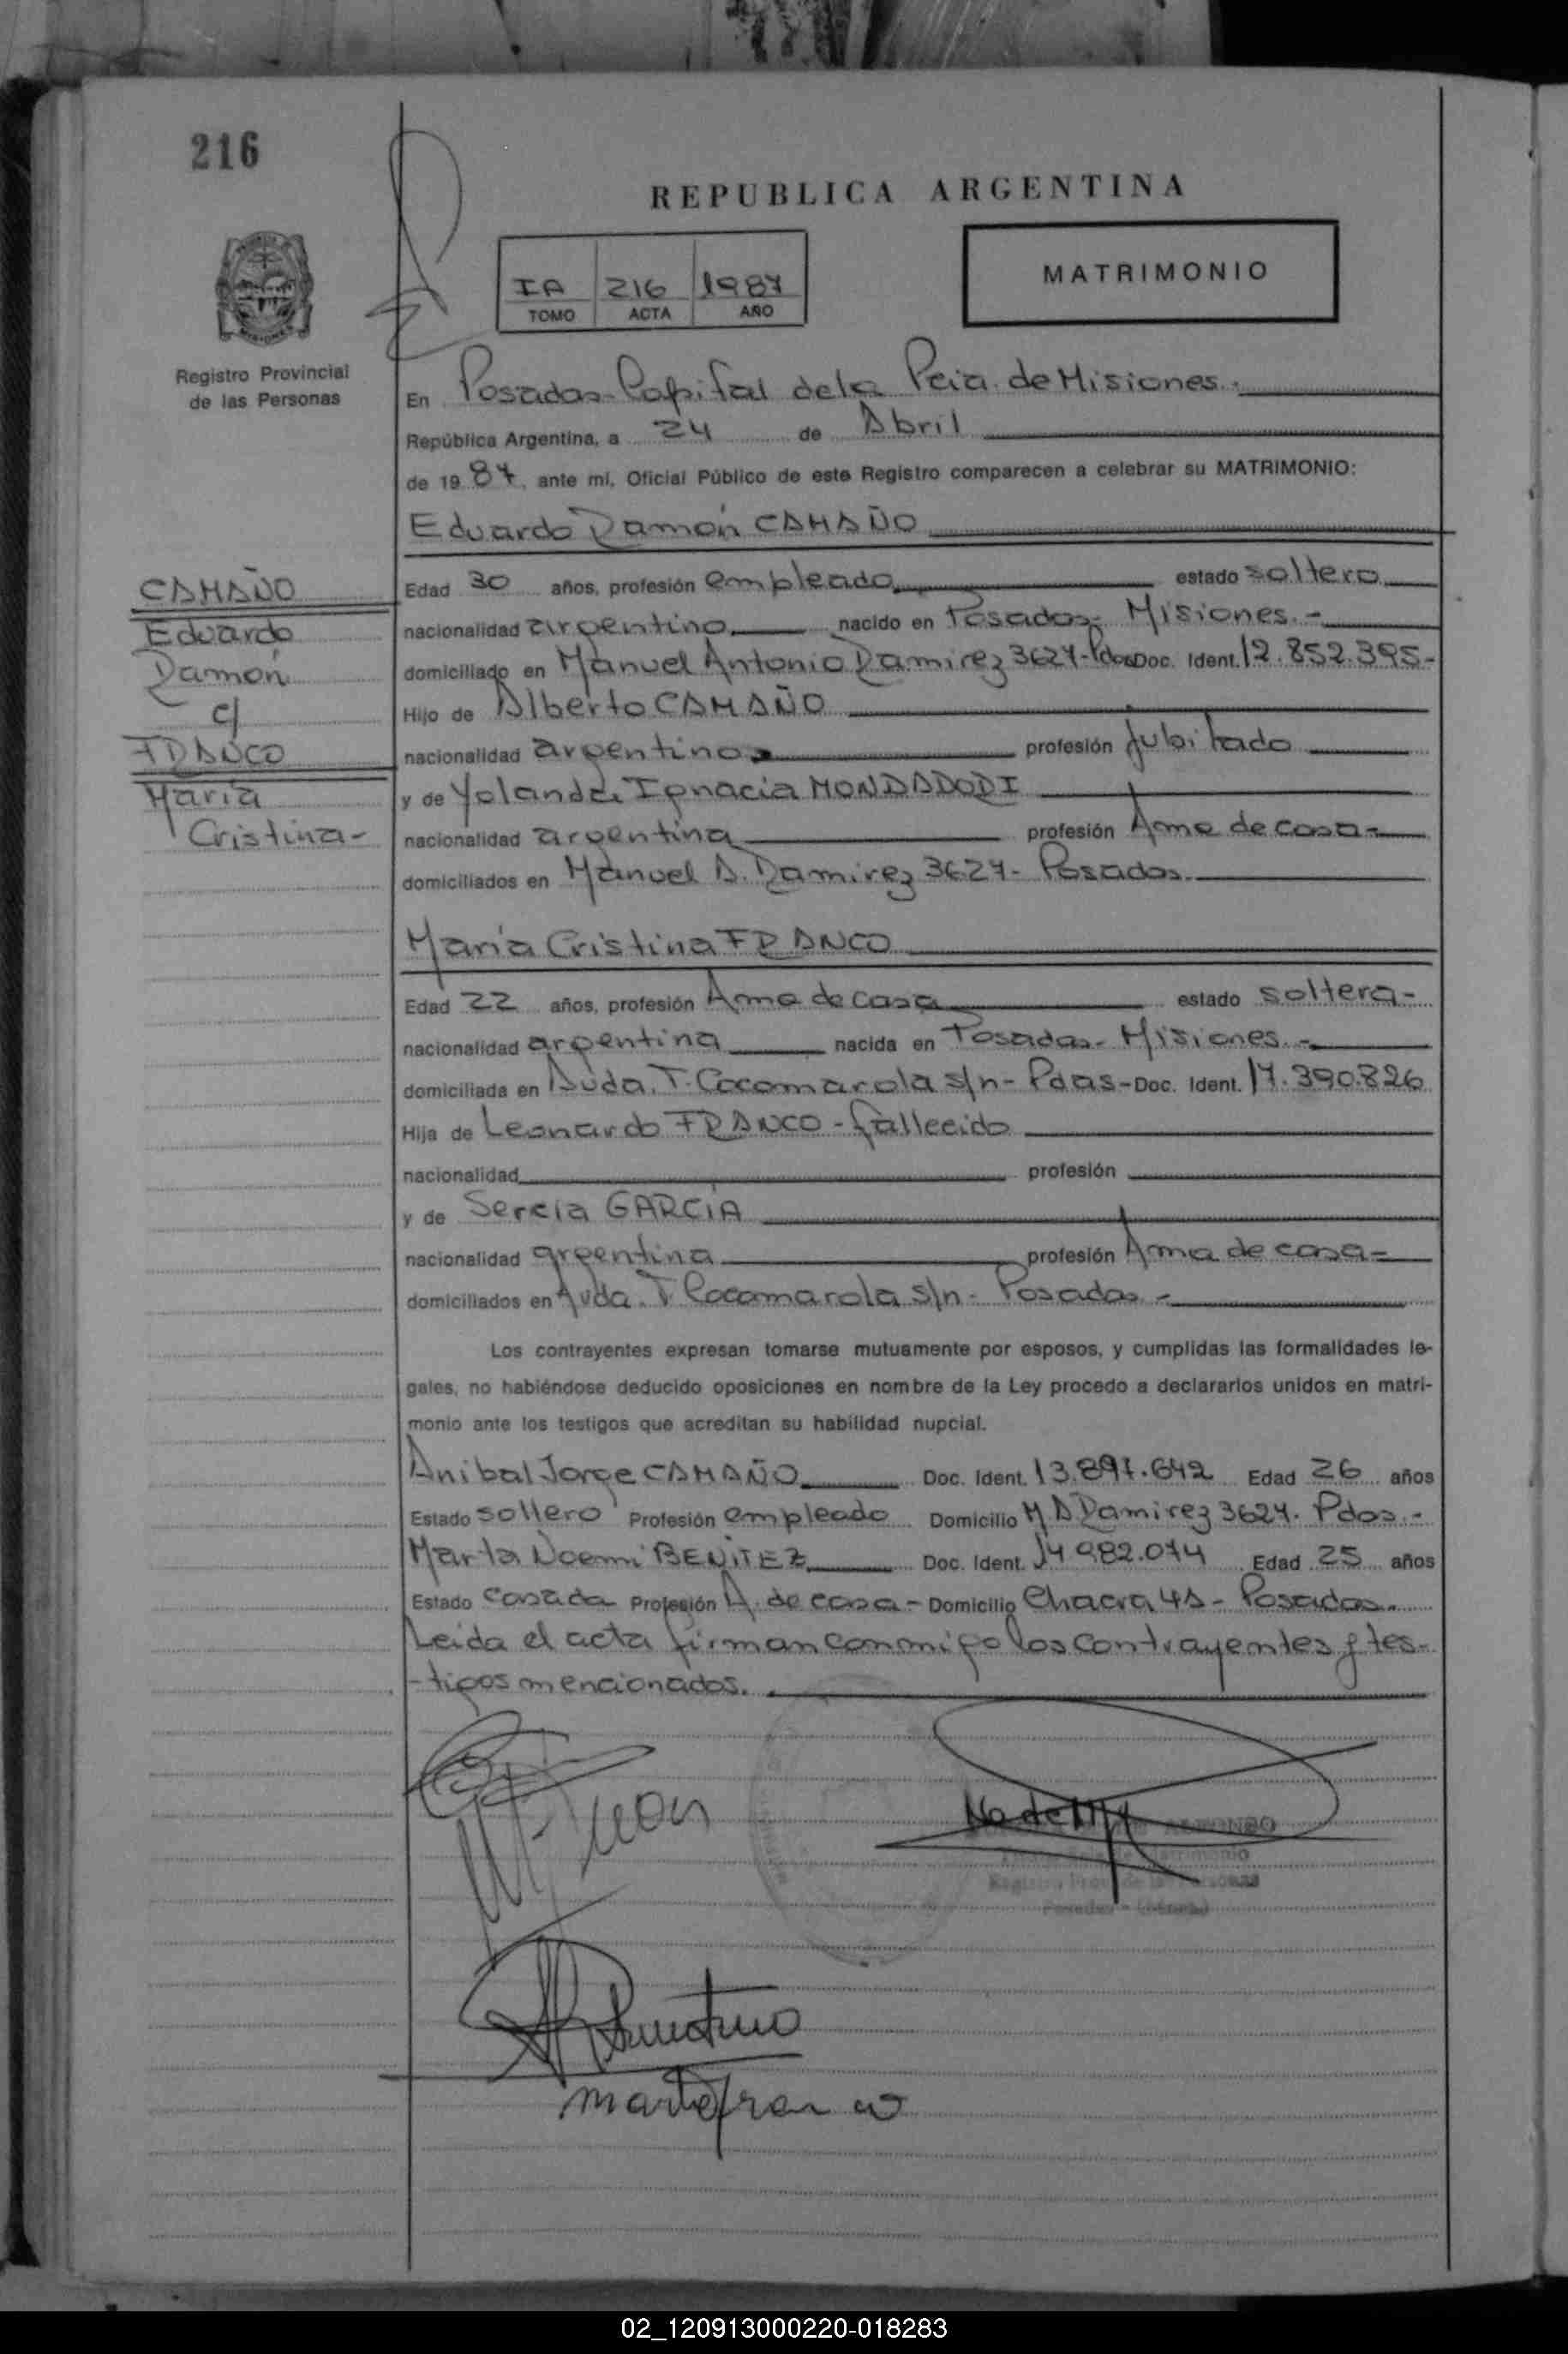 216
REPUBLICA ARGENTINA
IA 216 1987
TOMO ACTA AÑO
MATRIMONIO
Registro Provincial
de las Personas
En Posadas - Capital de la Pcia. de Misiones.
República Argentina, a 24 de Abril
de 1987, ante mí, Oficial Público de este Registro comparecen a celebrar su MATRIMONIO:
Eduardo Ramón CAMAÑO
CAMAÑO
Eduardo
Ramón
c/
FRANCO
María
Cristina-
Edad 30 años, profesión empleado estado soltero
nacionalidad argentino nacido en Posadas- Misiones.-
domiciliado en Manuel Antonio Ramirez 3624-Pdas Doc. Ident. 12.852.395-
Hijo de Alberto CAMAÑO
nacionalidad argentino profesión Jubilado
y de Yolanda Ignacia MONDADORI
nacionalidad argentina profesión Ama de casa-
domiciliados en Manuel A. Ramirez 3624- Posadas.
María Cristina FRANCO
Edad 22 años, profesión Ama de casa estado soltera-
nacionalidad argentina nacida en Posadas- Misiones.-
domiciliada en Avda. T. Cocomarola s/n- Pdas- Doc. Ident. 17.390.826
Hija de Leonardo FRANCO - fallecido
nacionalidad profesión
y de GARCIA
nacionalidad argentina profesión Ama de casa-
domiciliados en Avda. T. Cocomarola s/n- Posadas-
Los contrayentes expresan tomarse mutuamente por esposos, y cumplidas las formalidades le-
gales, no habiéndose deducido oposiciones en nombre de la Ley procedo a declararlos unidos en matri-
monio ante los testigos que acreditan su habilidad nupcial.
Anibal Jorge CAMAÑO Doc. Ident. 13.897.642 Edad 26 años
Estado soltero Profesión empleado Domicilio M A Ramirez 3624. Pdas.-
Marta Noemi BENITEZ Doc. Ident. 14 982.074 Edad 25 años
Estado casada Profesión A. de casa- Domicilio Chacra 4A- Posadas.
Leida el acta firman conmigo los contrayentes y tes-
-tigos mencionados.
02_120913000220-018283